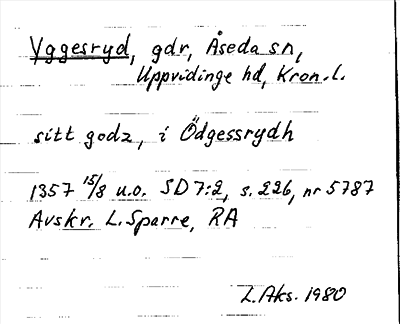 Yggesryd, gdr, Åseda sn,
Uppvidinge hd, Kron. l.
sitt godz, i Ödgessrydh
1357 15/8 u.o. SD 7:2, s. 226, nr 5787
Avskr. L. Sparre, RA
L. Aks. 1980